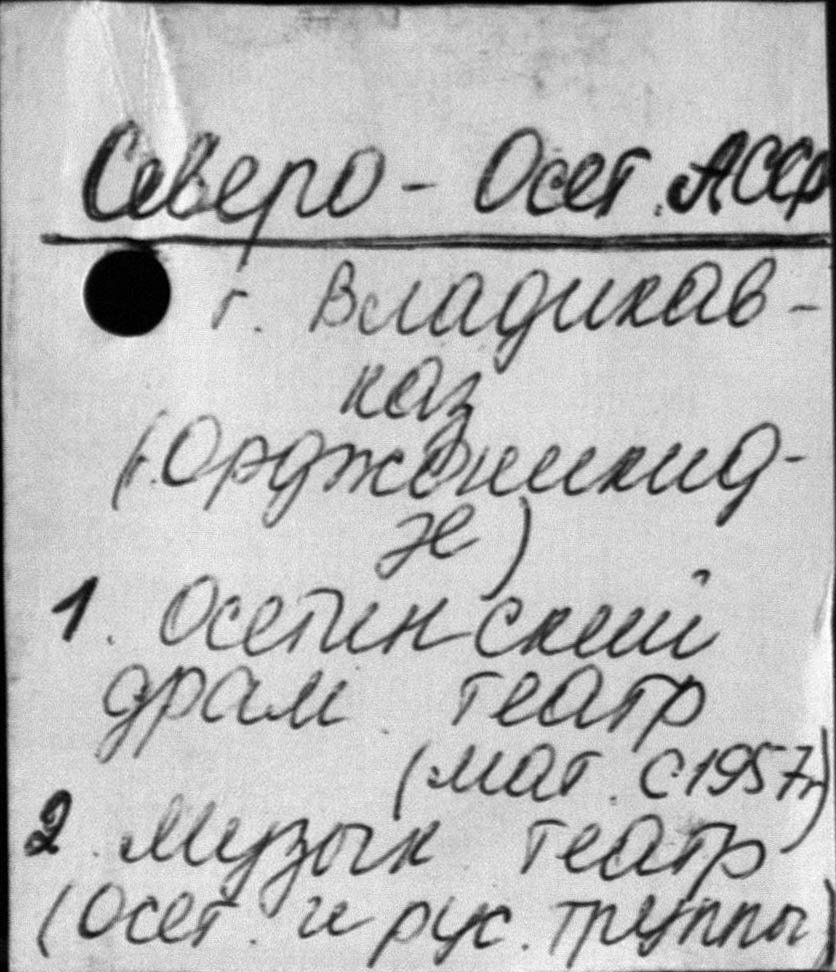 Северо - Осет. АССР
г. Владикав-
каз
(г. Орджоникид-
зе)
1. Осетинский
драм. театр
(мат. с 1957 г)
2. Музык театр
(осет. и рус. труппы)